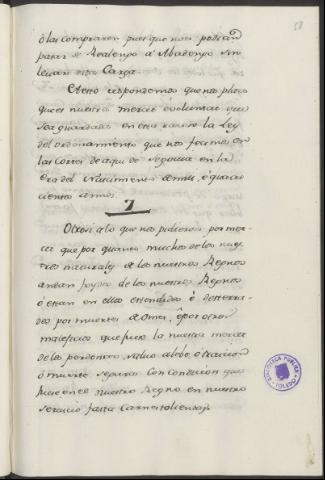 58
ó las compraren pues que non podían
pasar de Realengo á Abadengo sin
levar esta Carga.
A esto respondemos que nos plaze
que es nuestra merced é voluntad que
sea guardada en esta razon la Ley
del ordenamiento que nos fecimos en
las Cortes de aqui de Segovia en la
era del Nacimiento de mill, é quatro
cientos años.
7
Otrosi a lo que nos pidieron por mer
ced que por quanto muchos de los nues
tros naturales de los nuestros Regnos
andan foydos de los nuestros Regnos
ó estan en ellos escondidos é desterra
dos por muertes de omes, é por otros
maleficios que fuese la nuestra merced
de los perdonar, salvo alebe, ó traicion
ó muerte segura con condicion que
sirviesen nuestro Regno en nuestro
servicio fasta Carnestoliendas
BIBLIOTECA PUBLICA
TOLEDO